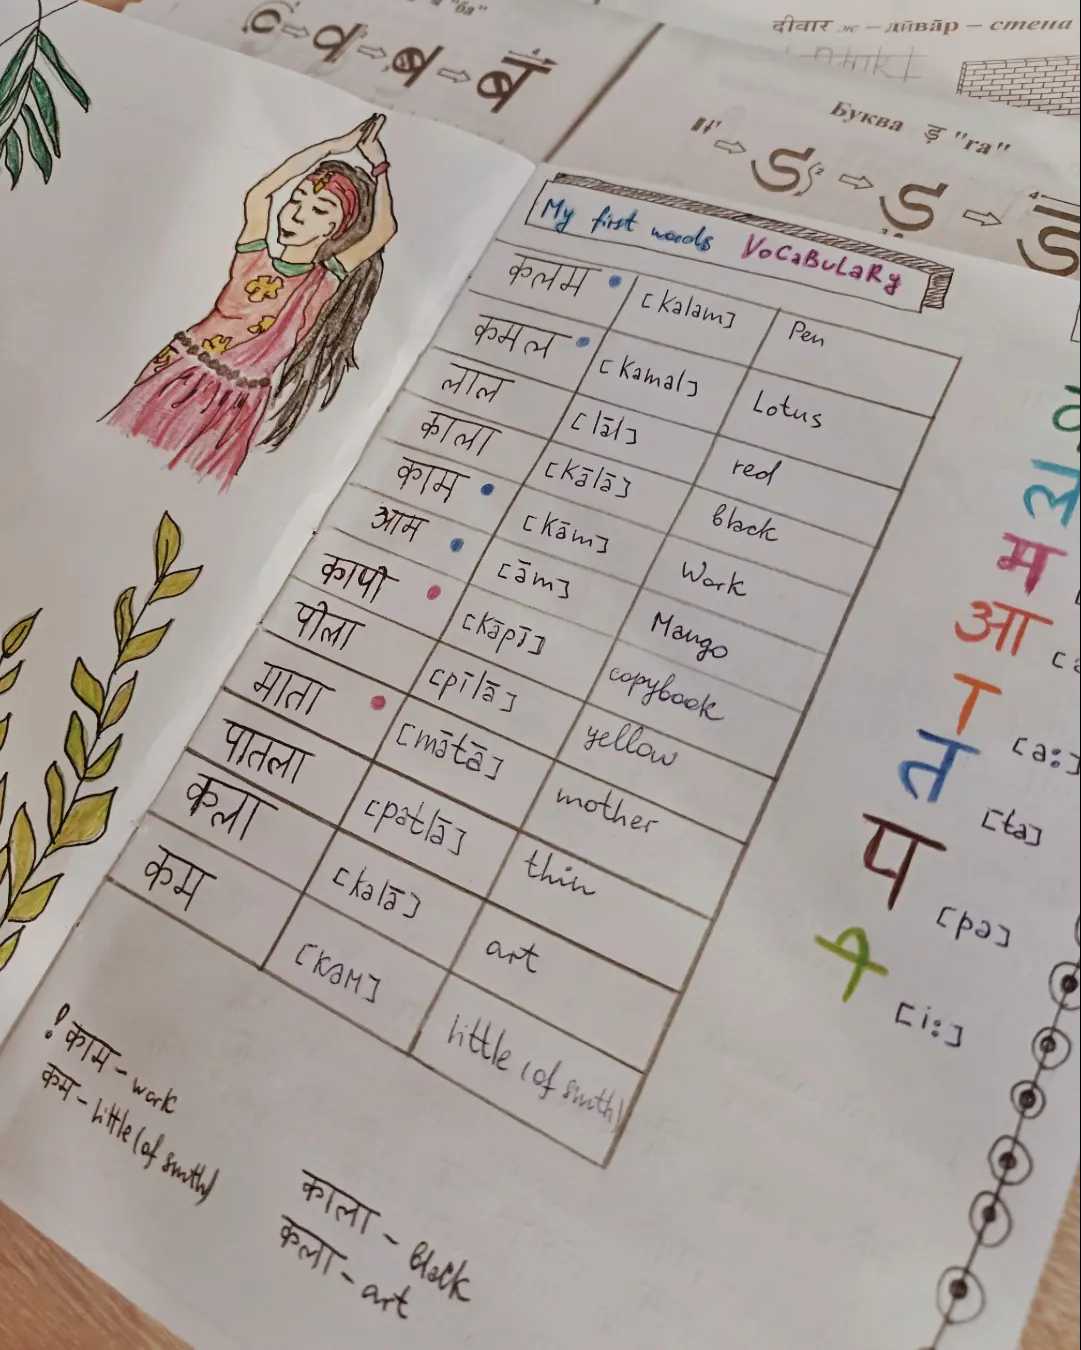 "ба"
दीवार ж – дӣва̄р – стена
Буква ड़ "ra"
My first words VocaBuLaRy
कलम [kalam] Pen
कमल [kamal] Lotus
लाल [lāl] red
काला [kālā] black
काम [kām] Work
आम [ām] Mango
कापी [kāpī] copybook
पीला [pīlā] yellow
माता [mātā] mother
पातला [patlā] thin
कला [kalā] art
कम [kam] little (of smth)
! काम – work
कम – little (of smth)
काला – black
कला – art
म
आ
ा [a:]
त [ta]
प [pa]
ी [i:]